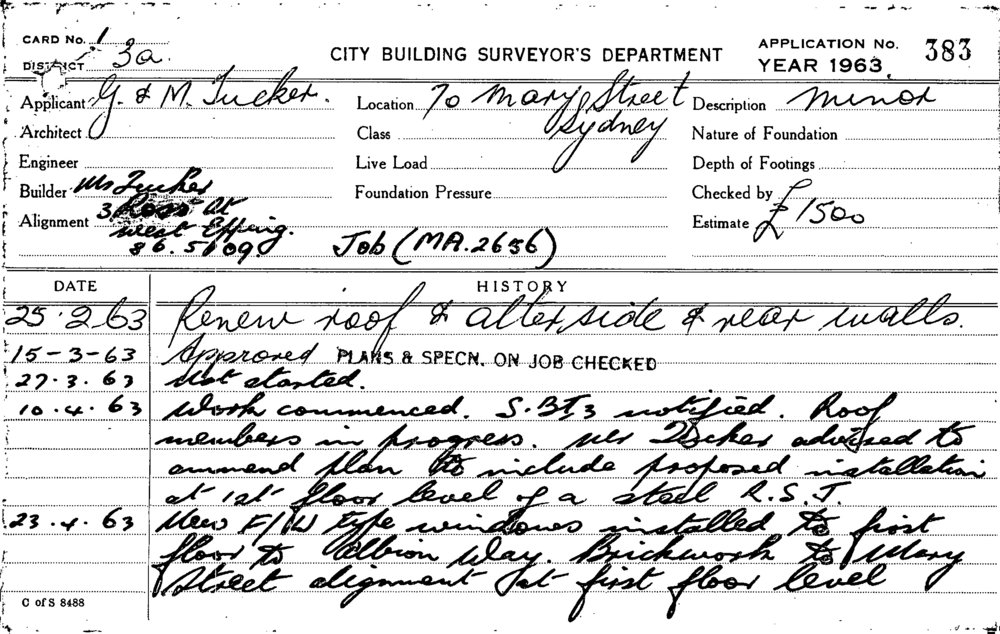 CARD No. 1
DISTRICT 3a.
CITY BUILDING SURVEYOR'S DEPARTMENT
APPLICATION No. 383
YEAR 1963
Applicant G. & M. Tucker.
Location 70 Mary Street
Sydney
Description Minor
Architect
Class
Nature of Foundation
Engineer
Live Load
Depth of Footings
Builder Mr Tucker
Foundation Pressure
Checked by
Alignment 3 Ross St
West Epping.
86.5109
Job (MA.2656)
Estimate £1500
DATE HISTORY
25.2.63 Renew roof & alter side & rear walls.
15-3-63 Approved PLANS & SPECN. ON JOB CHECKED
27.3.63 Not started.
10.4.63 Work commenced. S.BI3 notified. Roof
members in progress. Mr Tucker advised to
ammend plan to include proposed installation
at 1st floor level of a steel R.S.J.
23.4.63 New F/W type windows installed to first
floor to Albion Way. Brickwork to Mary
Street alignment at first floor level
C of S 8488